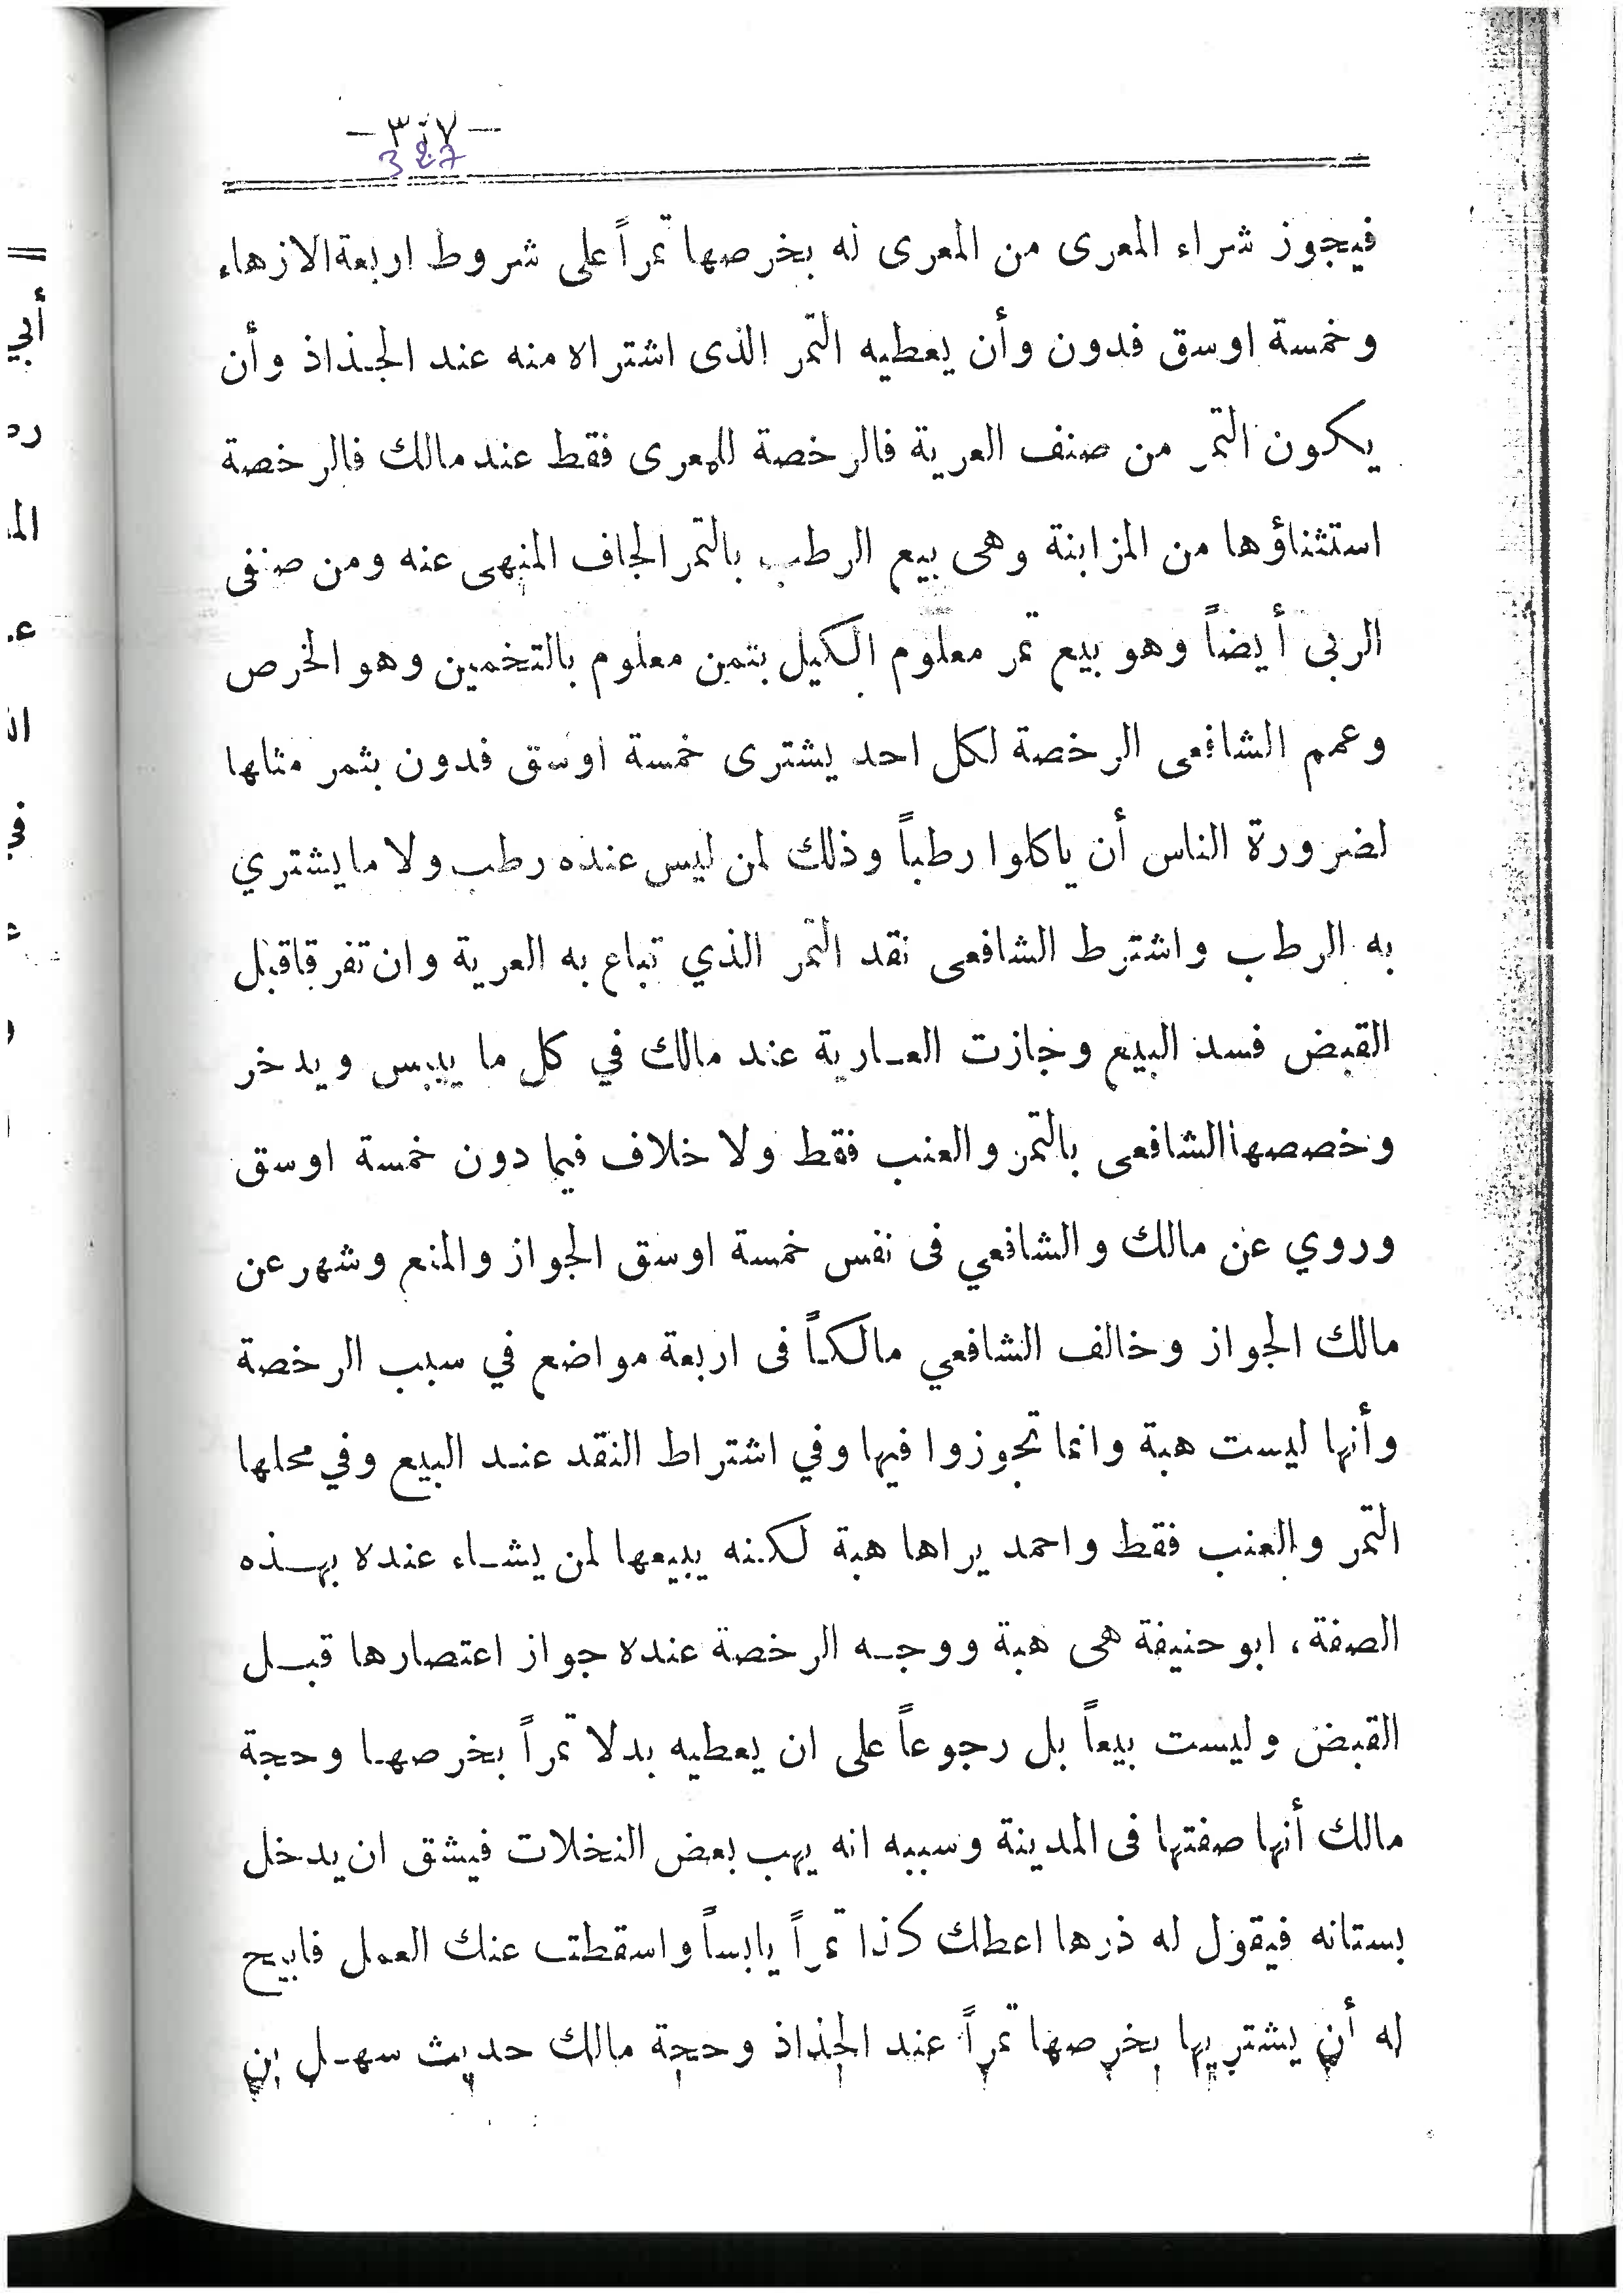 327
فيجوز شراء المعرى من المعرى له بخرصها تمراً على شروط اربعة الازهاء
وخمسة اوسق فدون وأن يعطيه التمر الذى اشتراه منه عند الجذاذ وأن
يكون التمر من صنف العرية فالرخصة للمعرى فقط عند مالك فالرخصة
استثناؤها من المزابنة وهى بيع الرطب بالتمر الجاف المنهى عنه ومن صنفى
الربى أيضاً وهو بيع تمر معلوم الكيل بتمن معلوم بالتخمين وهو الخرص
وعمم الشافعى الرخصة لكل احد يشترى خمسة اوسق فدون بثمر مثلها
لضرورة الناس أن ياكلوا رطباً وذلك لمن ليس عنده رطب ولا ما يشتري
به الرطب واشترط الشافعى نقد التمر الذي تباع به العرية وان تفرقا قبل
القبض فسد البيع وجازت العارية عند مالك في كل ما ييبس ويدخر
وخصصها الشافعى بالتمر والعنب فقط ولا خلاف فيما دون خمسة اوسق
وروي عن مالك والشافعي فى نفس خمسة اوسق الجواز والمنع وشهر عن
مالك الجواز وخالف الشافعي مالكاً فى اربعة مواضع في سبب الرخصة
وأنها ليست هبة وانما تجوزوا فيها وفي اشتراط النقد عند البيع وفي محلها
التمر والعنب فقط واحمد يراها هبة لكنه يبيعها لمن يشاء عنده بهذه
الصفة، ابو حنيفة هى هبة ووجه الرخصة عنده جواز اعتصارها قبل
القبض وليست بيعاً بل رجوعاً على ان يعطيه بدلا تمراً بخرصها وحجة
مالك أنها صفتها فى المدينة وسببه انه يهب بعض النخلات فيشق ان يدخل
بستانه فيقول له ذرها اعطك كذا تمراً يابساً واسقطت عنك العمل فابيح
له أن يشتريها بخرصها تمراً عند الجذاذ وحجة مالك حديث سهل بن